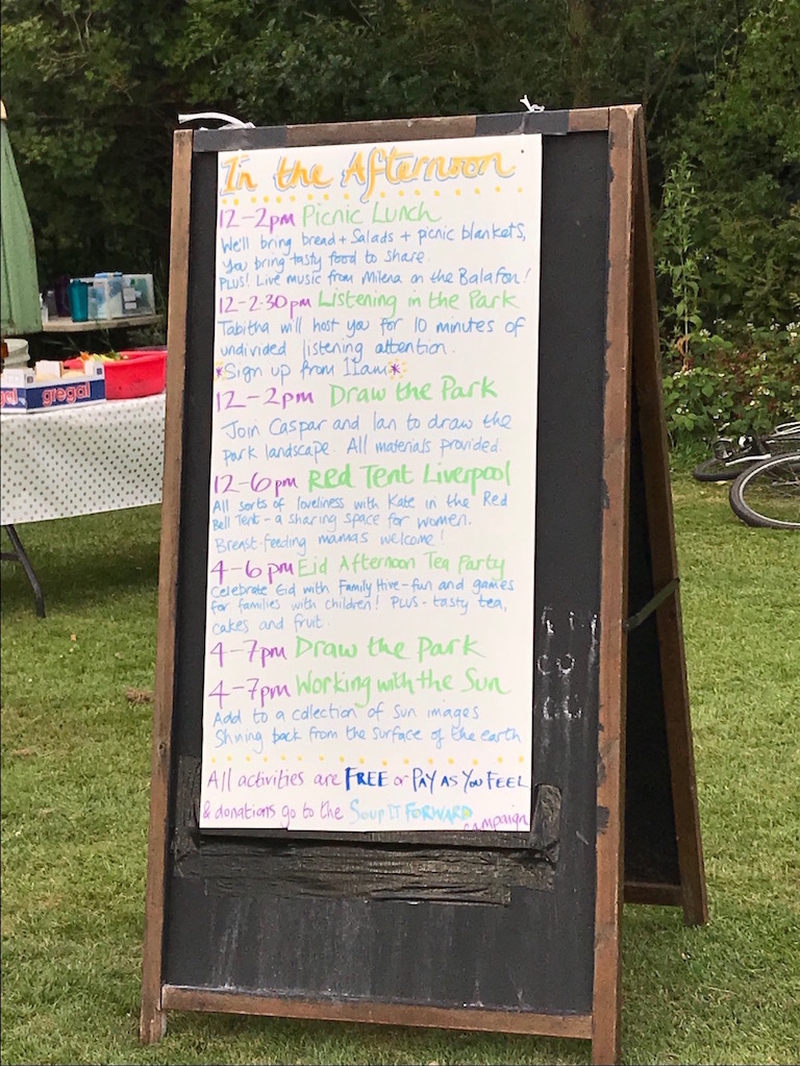 In the Afternoon
12-2pm Picnic Lunch
We'll bring bread + Salads + picnic blankets,
You bring tasty food to share.
PLUS! Live music from Milena on the Balafon!
12-2.30pm Listening in the Park
Tabitha will host you for 10 minutes of
undivided listening attention.
*Sign up from 11am*
12-2pm Draw the Park
Join Caspar and Ian to draw the
park landscape. All materials provided.
12-6pm Red Tent Liverpool
All sorts of loveliness with Kate in the Red
Bell Tent - a sharing space for women.
Breast-feeding mamas welcome!
4-6pm Eid Afternoon Tea Party
Celebrate Eid with Family Hive - fun and games
for families with children! PLUS - tasty tea,
cakes and fruit.
4-7pm Draw the Park
4-7pm Working with the Sun
Add to a collection of sun images
Shining back from the surface of the earth
All activities are FREE or PAY AS YOU FEEL
& donations go to the SOUP IT FORWARD
campaign
gregal